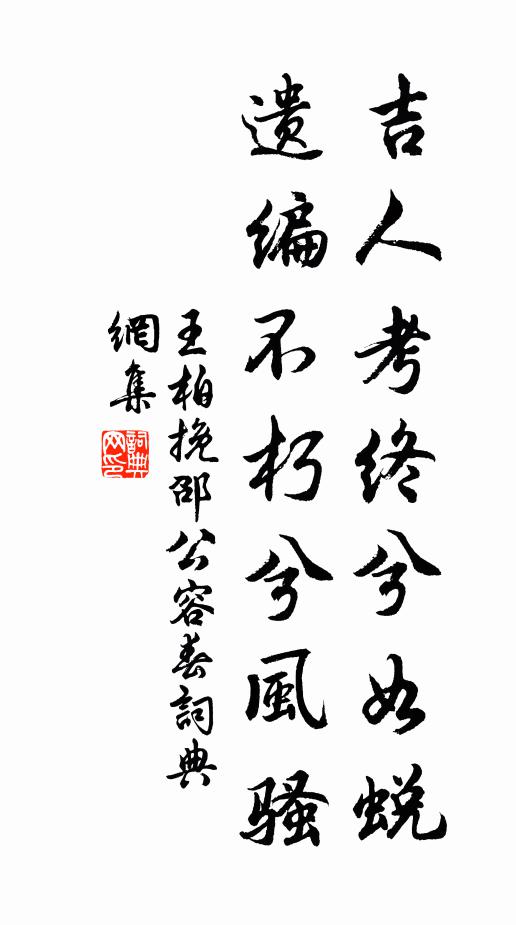 吉人考終兮如蛻
遺編不朽兮風騷
王柏挽邵公容春詞典
網集
詞典
网印